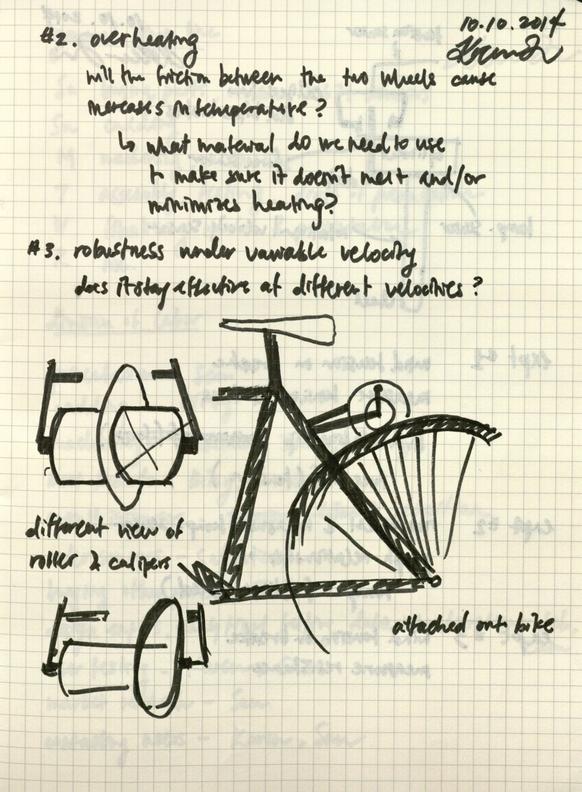 10.10.2014
#2. overheating
will the friction between the two wheels cause
increases in temperature?
↳ what material do we need to use
to make sure it doesn't melt and/or
minimizes heating?
#3. robustness under variable velocity
does it stay effective at different velocities?
different view of
roller & calipers
attached onto bike